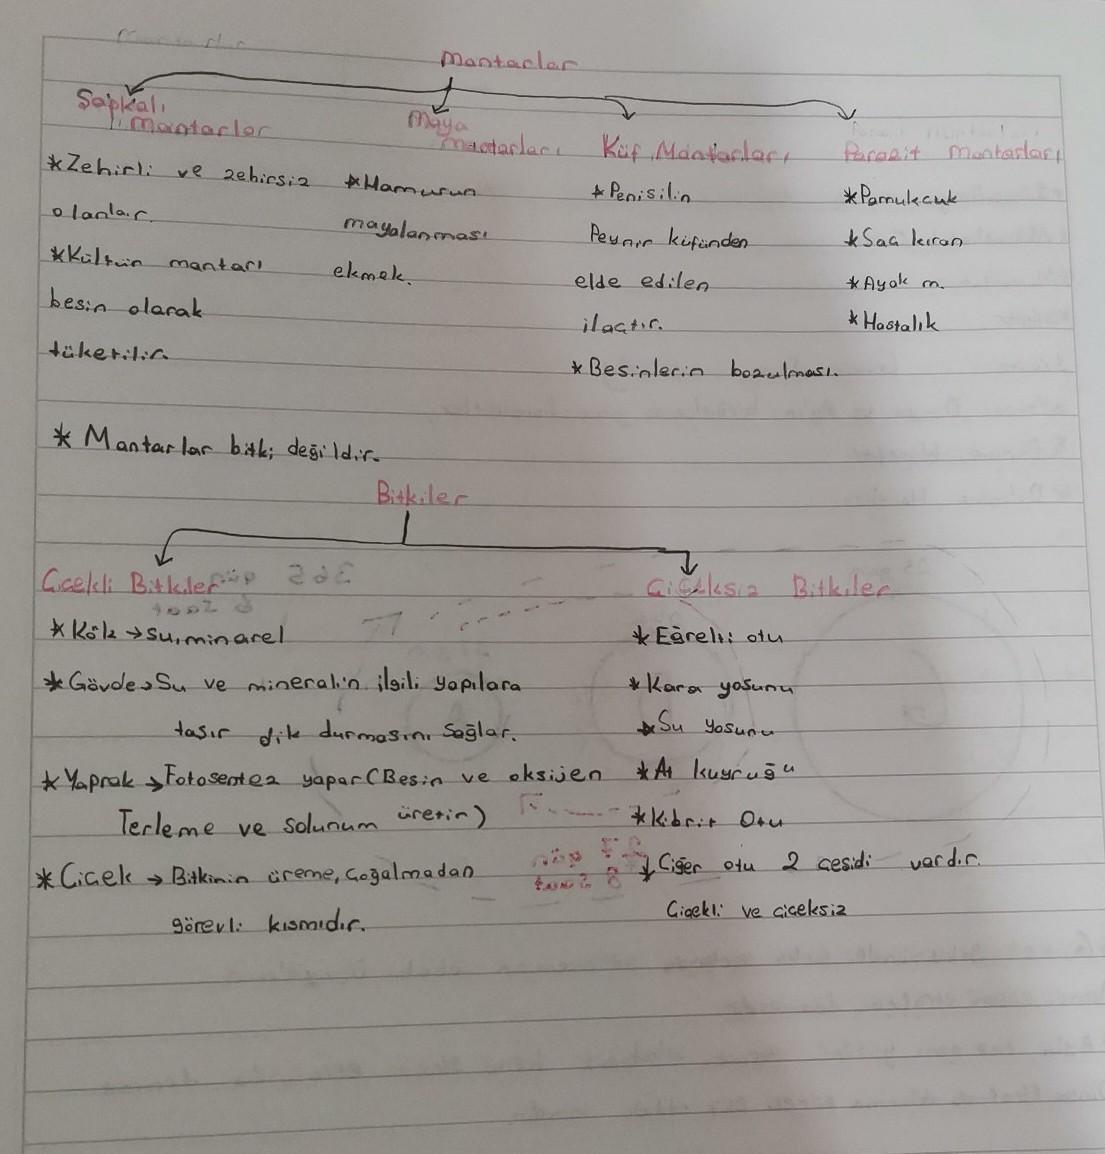 Mantarlar
Şapkalı
Mantarlar
Maya
mantarları
Küf Mantarları
Parazit mantarları
*Zehirli ve zehirsiz
olanlar.
*Kültür mantarı
besin olarak
tüketilir.
*Hamurun
mayalanması
ekmek.
*Penisilin
Peynir küfünden
elde edilen
ilaçtır.
*Besinlerin bozulması.
*Pamukcuk
*Sac kıran
*Ayak m.
*Hastalık
* Mantarlar bitki değildir.
Bitkiler
Çiçekli Bitkiler
*Kök → su, minarel
*Gövde → Su ve mineralin ilgili yapılara
taşır dik durmasını sağlar.
*Yaprak → Fotosentez yapar (Besin ve oksijen
Terleme ve solunum üretir)
*Çiçek → Bitkinin üreme, çoğalmadan
görevli kısmıdır.
Çiçeksiz Bitkiler
*Eğrelti otu
*Kara yosunu
*Su yosunu
*At kuyruğu
*Kibrit Otu
*Ciğer otu 2 çeşidi vardır.
Çiçekli ve çiçeksiz